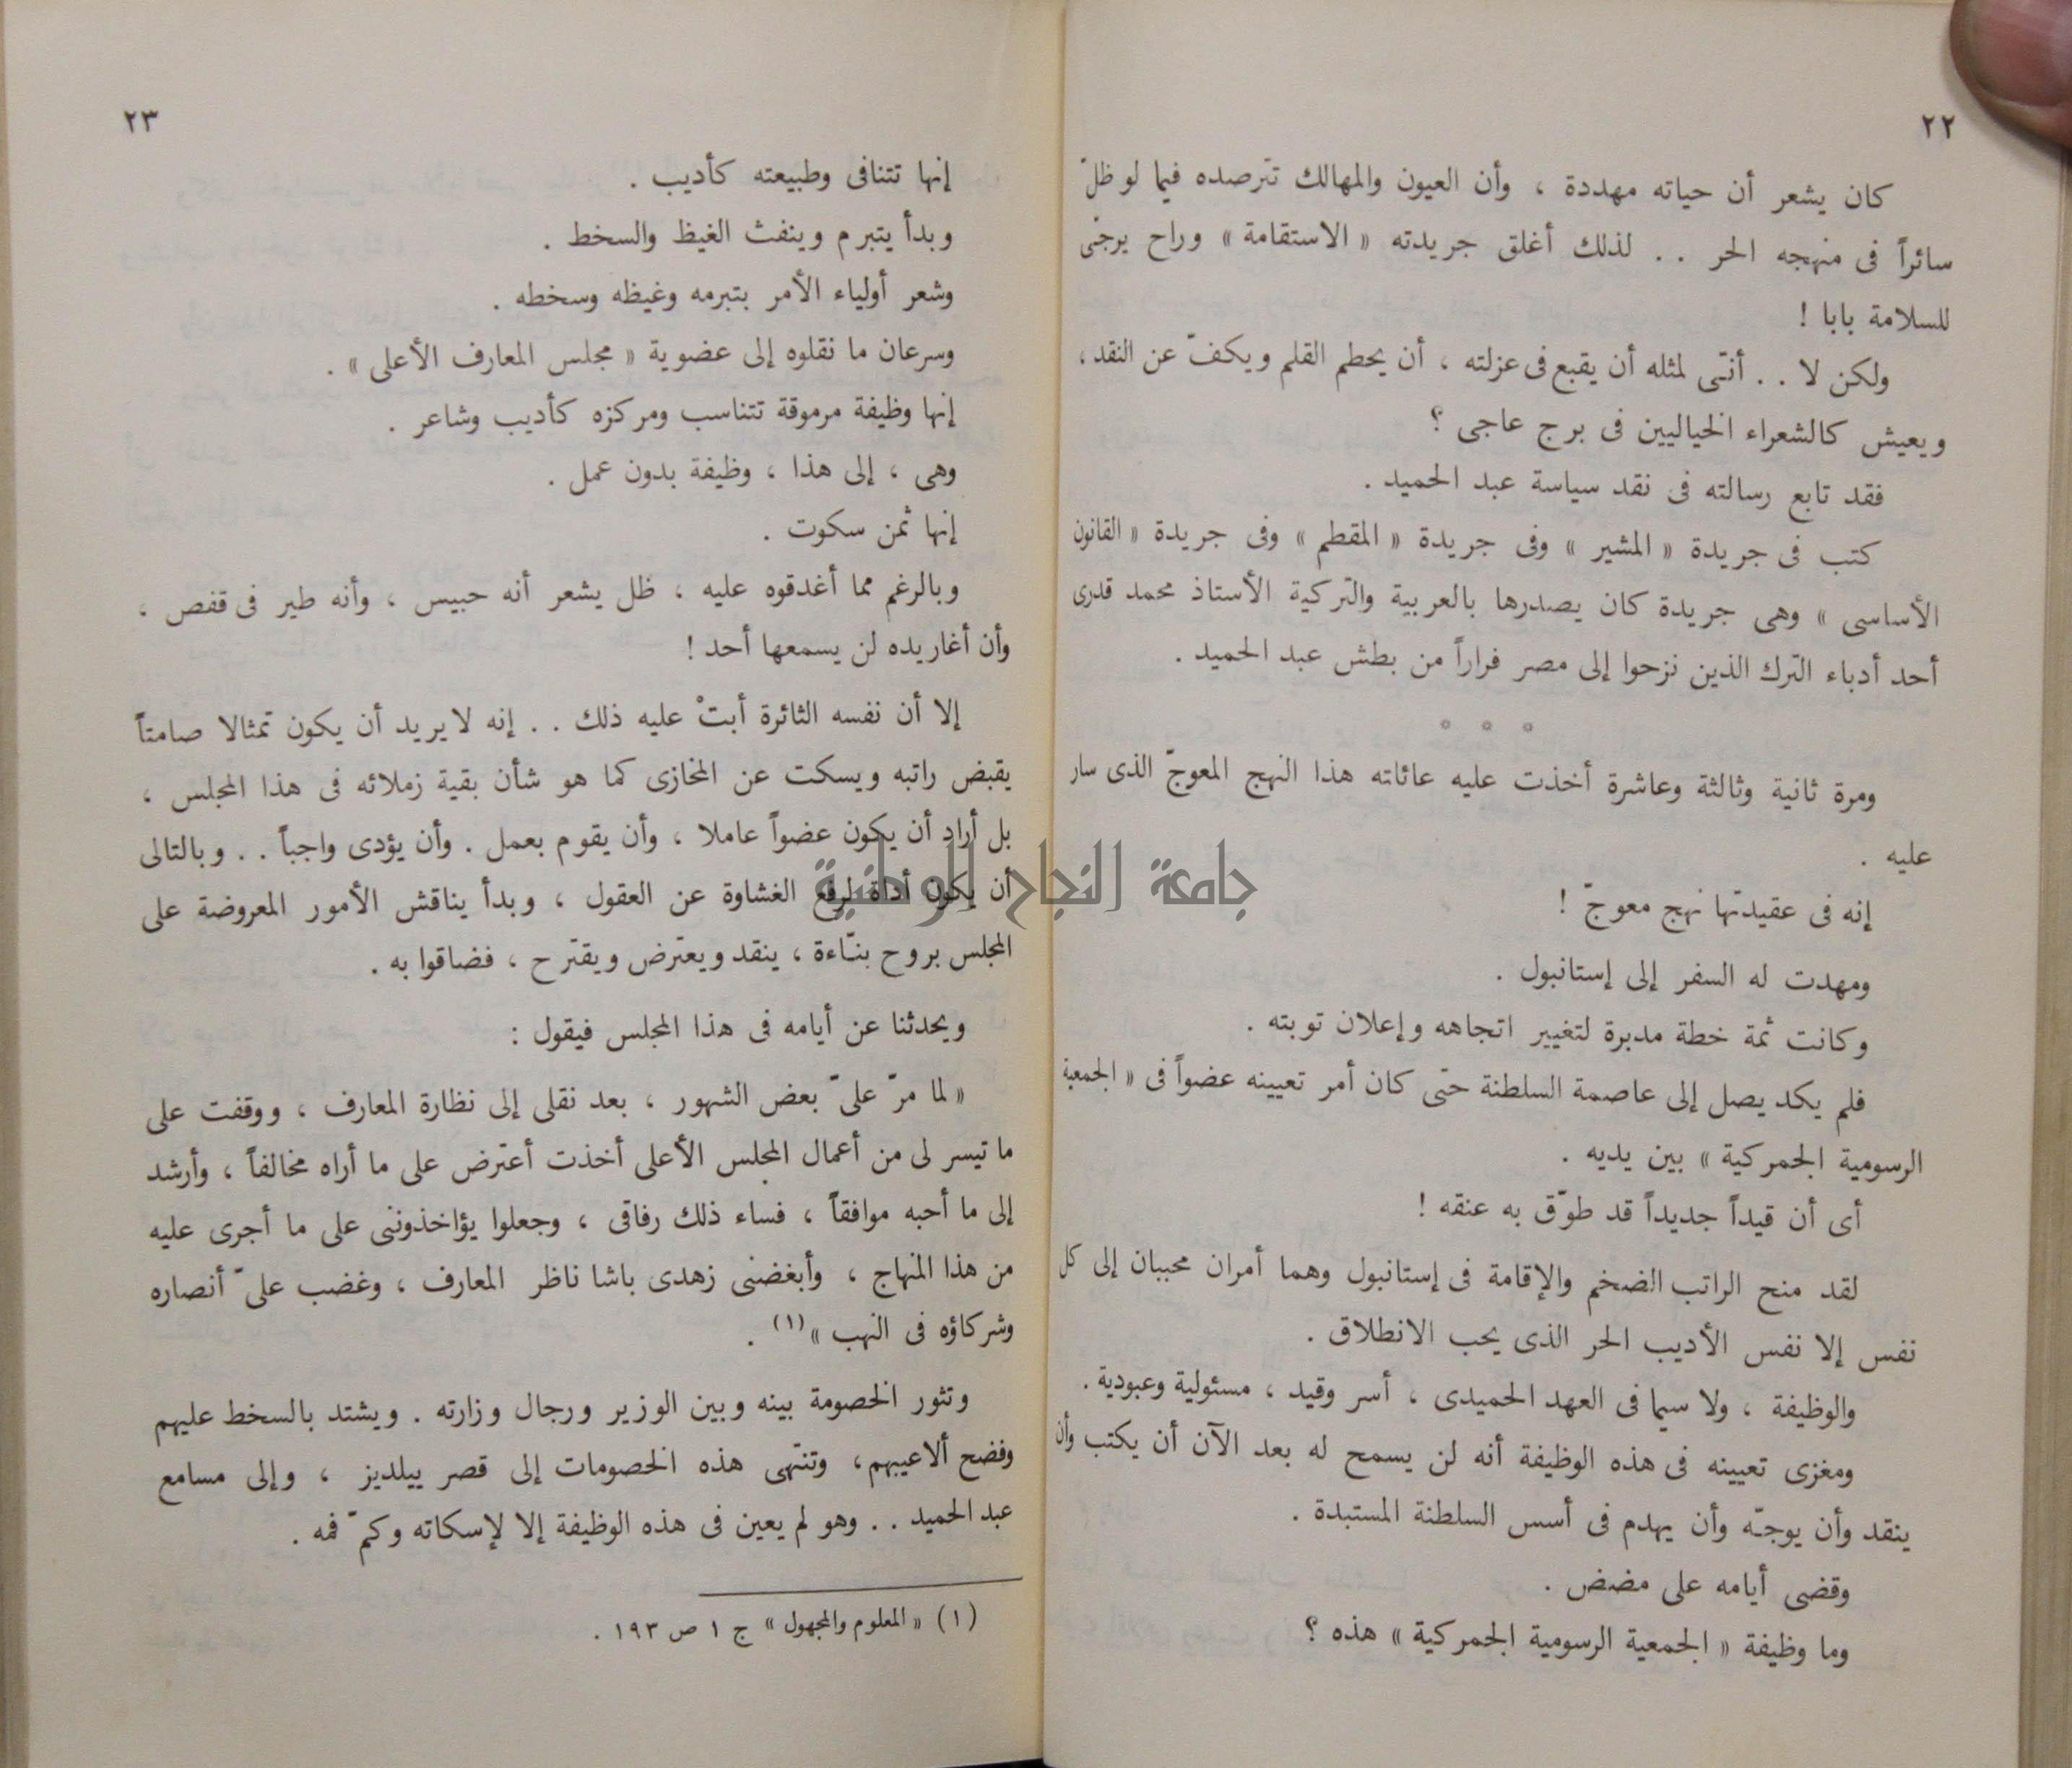 ٢٢
كان يشعر أن حياته مهددة ، وأن العيون والمهالك تترصده فيما لو ظلّ
سائراً فى منهجه الحر . . لذلك أغلق جريدته « الاستقامة » وراح يرجّى
للسلامة بابا !
ولكن لا . . أنّى لمثله أن يقبع فى عزلته ، أن يحطم القلم ويكفّ عن النقد ،
ويعيش كالشعراء الخياليين فى برج عاجى ؟
فقد تابع رسالته فى نقد سياسة عبد الحميد .
كتب فى جريدة « المشير » وفى جريدة « المقطم » وفى جريدة « القانون
الأساسى » وهى جريدة كان يصدرها بالعربية والتركية الأستاذ محمد قدرى
أحد أدباء الترك الذين نزحوا إلى مصر فراراً من بطش عبد الحميد .
* * *
ومرة ثانية وثالثة وعاشرة أخذت عليه عائاته هذا النهج المعوجّ الذى سار
عليه .
إنه فى عقيدتها نهج معوجّ !
ومهدت له السفر إلى إستانبول .
وكانت ثمة خطة مدبرة لتغيير اتجاهه وإعلان توبته .
فلم يكد يصل إلى عاصمة السلطنة حتى كان أمر تعيينه عضواً فى « الجمعية
الرسومية الجمركية » بين يديه .
أى أن قيداً جديداً قد طوّق به عنقه !
لقد منح الراتب الضخم والإقامة فى إستانبول وهما أمران محببان إلى كل
نفس إلا نفس الأديب الحر الذى يحب الانطلاق .
والوظيفة ، ولا سيما فى العهد الحميدى ، أسر وقيد ، مسئولية وعبودية .
ومغزى تعيينه فى هذه الوظيفة أنه لن يسمح له بعد الآن أن يكتب وأن
ينقد وأن يوجّه وأن يهدم فى أسس السلطنة المستبدة .
وقضى أيامه على مضض .
وما وظيفة « الجمعية الرسومية الجمركية » هذه ؟
٢٣
إنها تتنافى وطبيعته كأديب .
وبدأ يتبرم وينفث الغيظ والسخط .
وشعر أولياء الأمر بتبرمه وغيظه وسخطه .
وسرعان ما نقلوه إلى عضوية « مجلس المعارف الأعلى » .
إنها وظيفة مرموقة تتناسب ومركزه كأديب وشاعر .
وهى ، إلى هذا ، وظيفة بدون عمل .
إنها ثمن سكوت .
وبالرغم مما أغدقوه عليه ، ظل يشعر أنه حبيس ، وأنه طير فى قفص ،
وأن أغاريده لن يسمعها أحد !
إلا أن نفسه الثائرة أبتْ عليه ذلك . . إنه لا يريد أن يكون تمثالا صامتاً
يقبض راتبه ويسكت عن المخازى كما هو شأن بقية زملائه فى هذا المجلس ،
بل أراد أن يكون عضواً عاملا ، وأن يقوم بعمل . وأن يؤدى واجباً . . وبالتالى
أن يكون أداة لرفع الغشاوة عن العقول ، وبدأ يناقش الأمور المعروضة على
المجلس بروح بنّاءة ، ينقد ويعترض ويقترح ، فضاقوا به .
ويحدثنا عن أيامه فى هذا المجلس فيقول :
« لما مرّ علىّ بعض الشهور ، بعد نقلى إلى نظارة المعارف ، ووقفت على
ما تيسر لى من أعمال المجلس الأعلى أخذت أعترض على ما أراه مخالفاً ، وأرشد
إلى ما أحبه موافقاً ، فساء ذلك رفاقى ، وجعلوا يؤاخذوننى على ما أجرى عليه
من هذا المنهاج ، وأبغضنى زهدى باشا ناظر المعارف ، وغضب علىّ أنصاره
وشركاؤه فى النهب »(١) .
وتثور الخصومة بينه وبين الوزير ورجال وزارته . ويشتد بالسخط عليهم
وفضح ألاعيبهم ، وتنتهى هذه الخصومات إلى قصر ييلديز ، وإلى مسامع
عبد الحميد . . وهو لم يعين فى هذه الوظيفة إلا لإسكاته وكمّ فمه .
(١) « المعلوم والمجهول » ج ١ ص ١٩٣ .
جامعة النجاح الوطنية